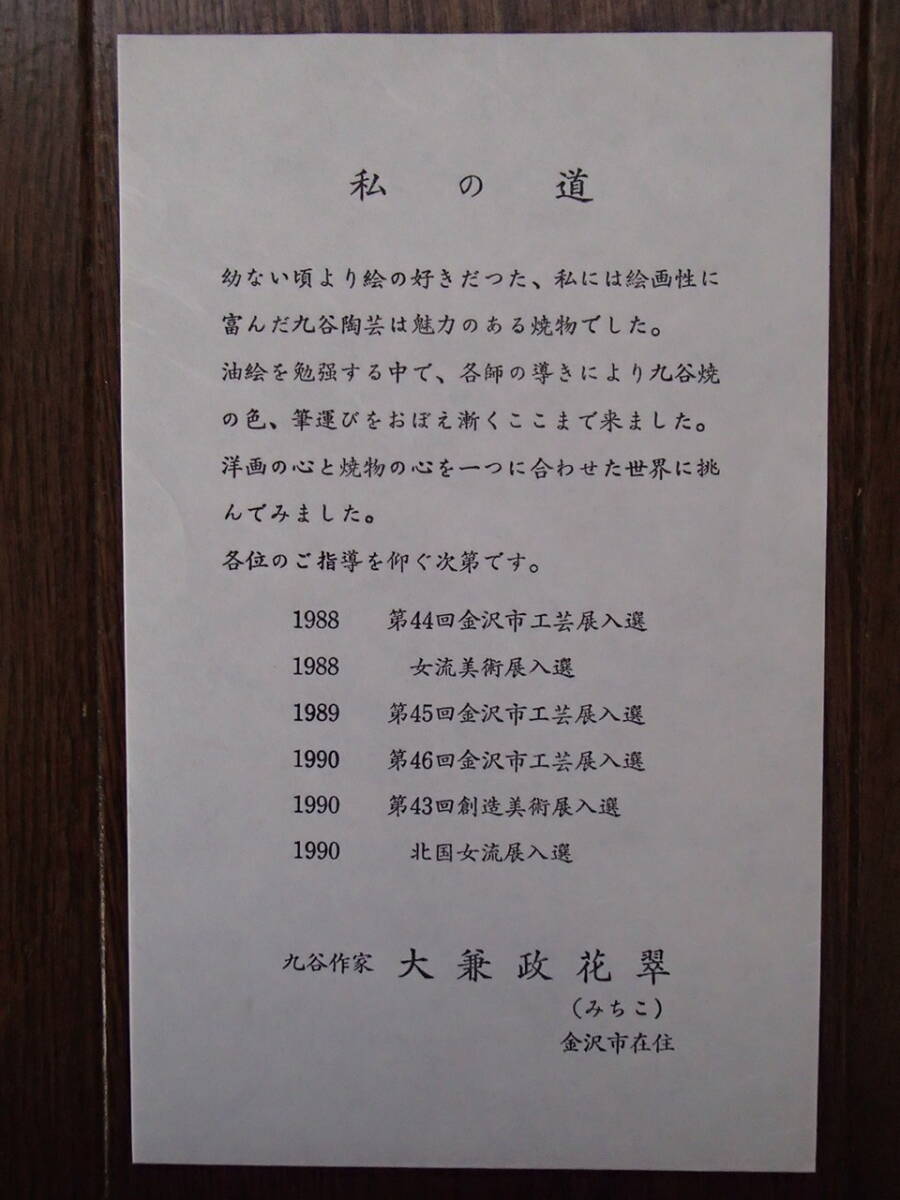 私の道
幼ない頃より絵の好きだつた、私には絵画性に
富んだ九谷陶芸は魅力のある焼物でした。
油絵を勉强する中で、各師の導きにより九谷焼
の色、筆運びをおぼえ漸くここまで来ました。
洋画の心と焼物の心を一つに合わせた世界に挑
んでみました。
各位のご指導を仰ぐ次第です。
1988 第44回金沢市工芸展入選
1988 女流美術展入選
1989 第45回金沢市工芸展入選
1990 第46回金沢市工芸展入選
1990 第43回創造美術展入選
1990 北国女流展入選
九谷作家 大兼政花翠
（みちこ）
金沢市在住